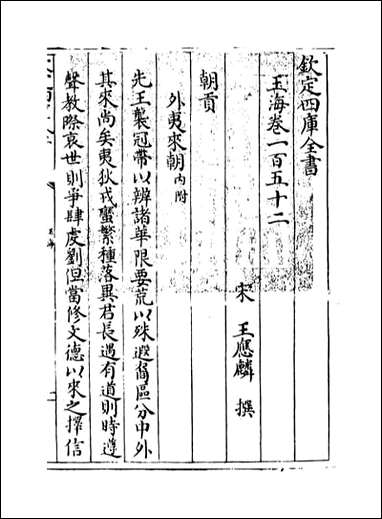 欽定四庫全書
玉海卷一百五十二
宋 王應麟 撰
朝貢
外夷來朝内附
先王襲冠帶以辨諸華限要荒以殊遐裔區分中外
其來尚矣夷狄戎蠻繁種落異君長遇有道則時遵
聲教際衰世則爭肆虔劉但當修文德以來之擇信